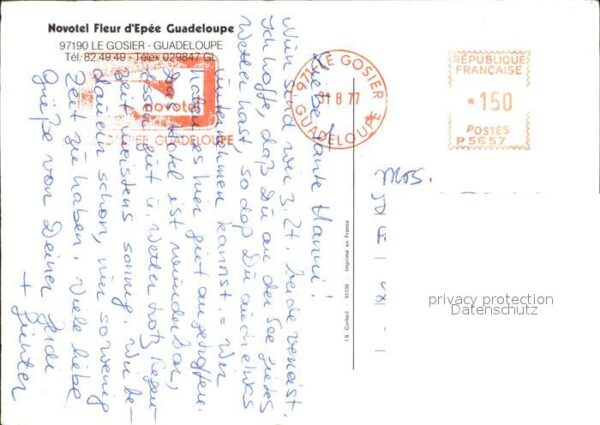 Novotel Fleur d'Epée Guadeloupe
97190 LE GOSIER - GUADELOUPE
Tél: 82.49.49 - Télex 029847 GL
novotel
ÉPÉE GUADELOUPE
971-LE GOSIER
31 8 77
GUADELOUPE
RÉPUBLIQUE
FRANÇAISE
*150
POSTES
P5657
Liebe Tante Hanni!
Nun sind wir z. Zt. beide verreist.
Ich hoffe, daß Du an der See gutes
Wetter hast, so daß Du auch etwas
unternehmen kannst. = Wir
haben es hier gut angetroffen.
Das Hotel ist wunderbar,
Essen gut u. Wetter trotz Regen-
zeit meistens sonnig. Wir be-
dauern schon, nur so wenig
Zeit zu haben. Viele liebe
Grüße von Deiner Heidi
+ Günter
I.S. Corbeil 91100 - Imprimé en France
Mrs.
privacy protection
Datenschutz